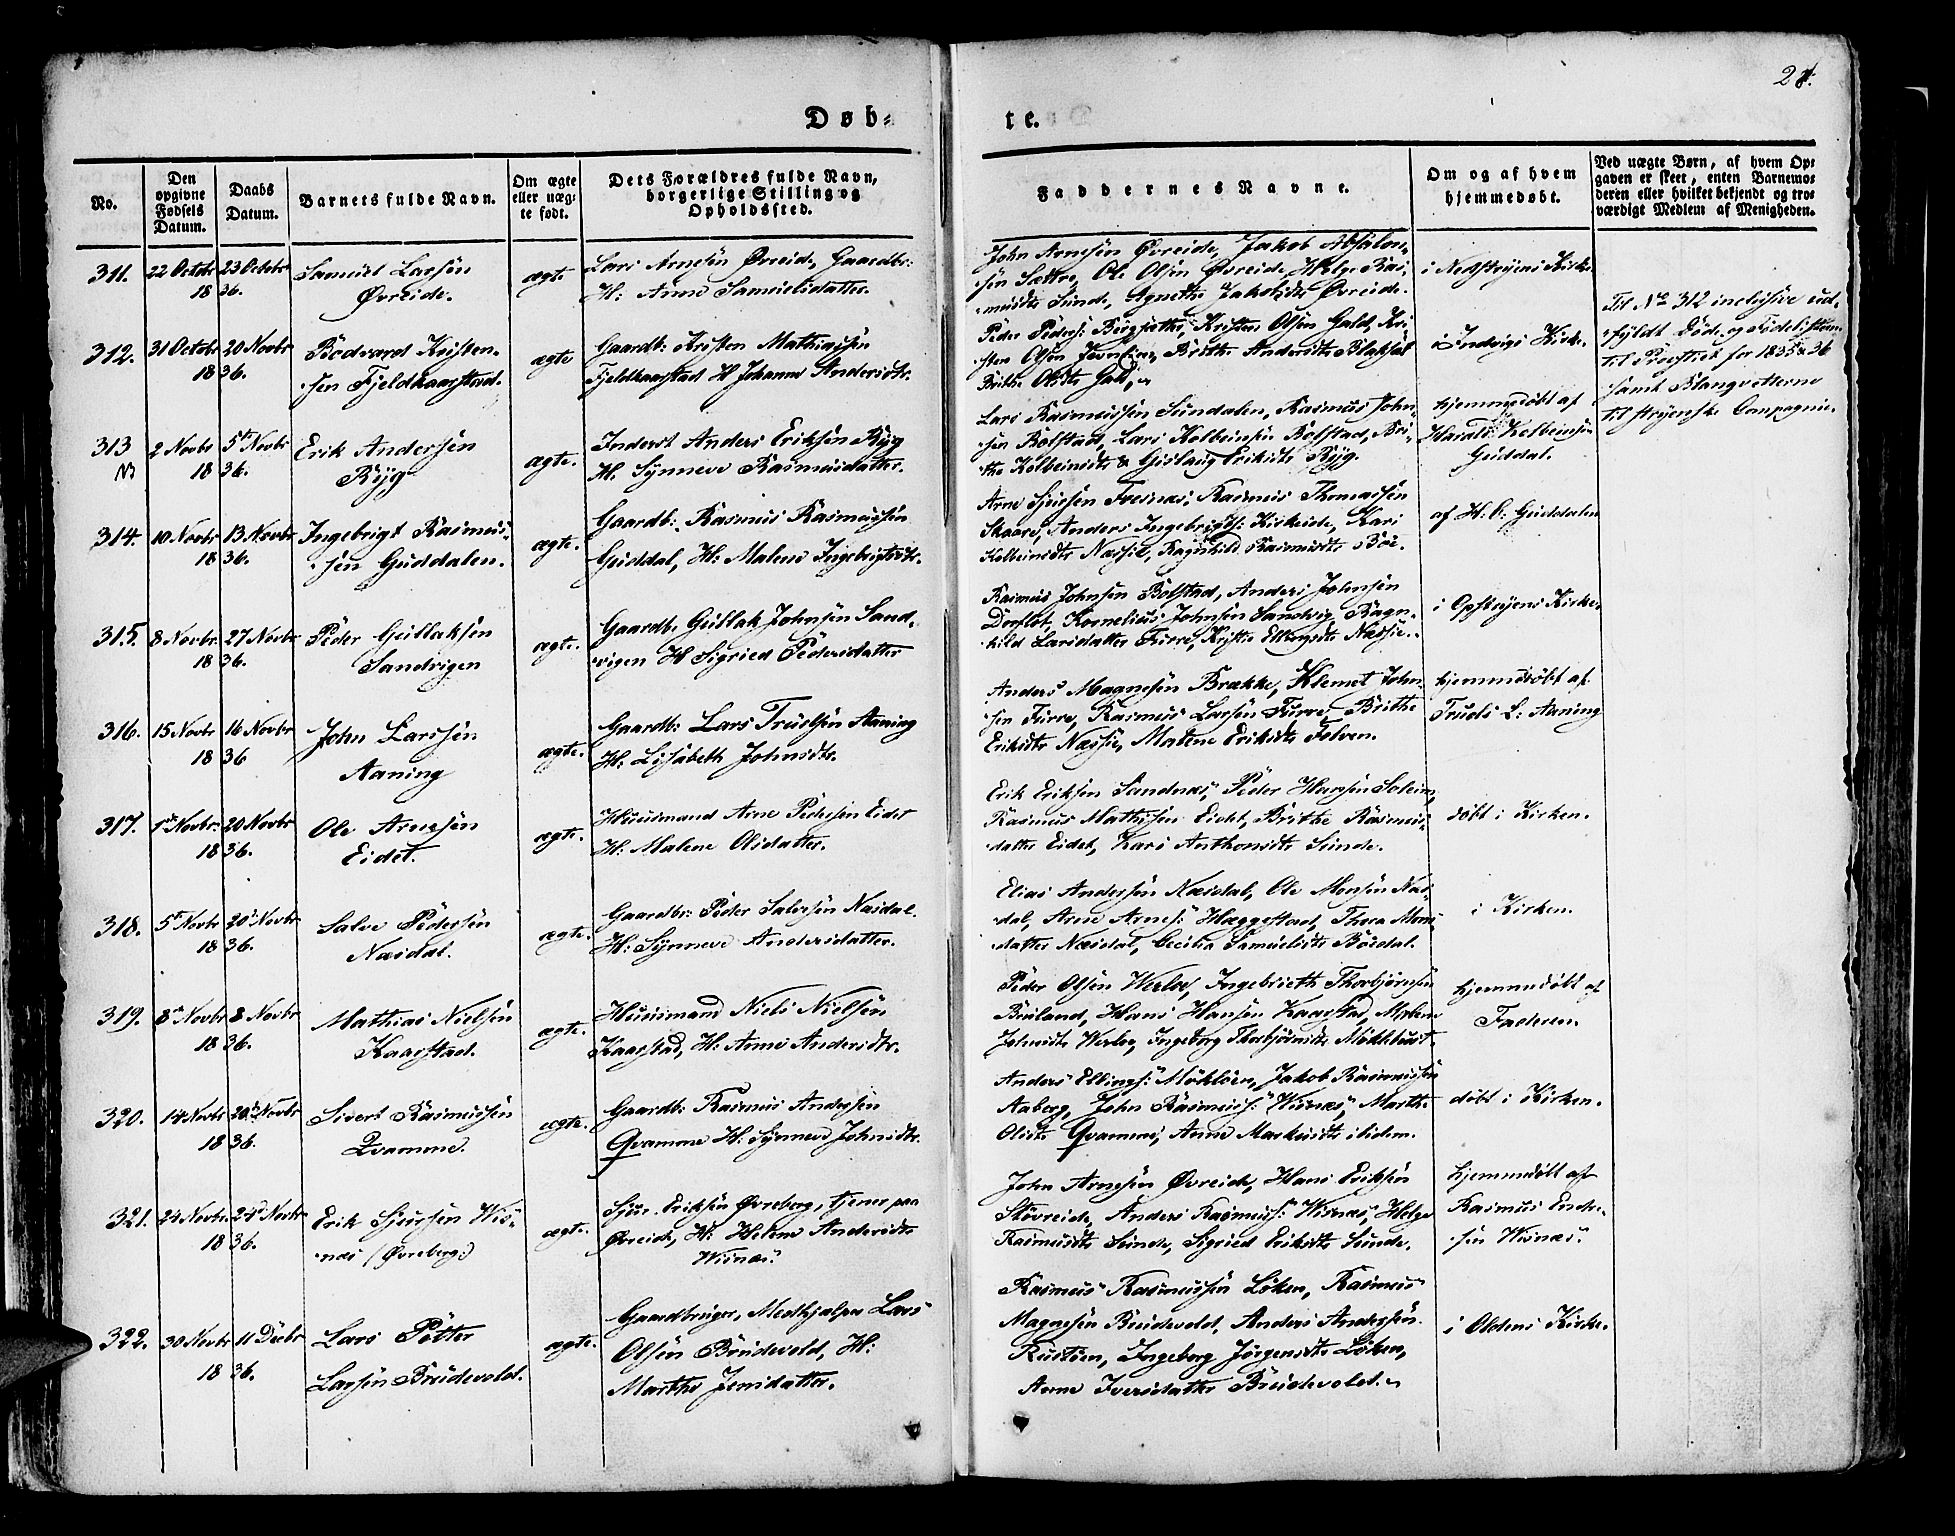 Døb-
te.
No.
Den opgivne Fødsels Datum.
Daabs Datum.
Barnets fulde Navn.
Om ægte eller uægte født.
Dets Forældres fulde Navn, borgerlige Stilling og Opholdssted.
Faddernes Navne.
Om og af hvem hjemmedøbt.
Ved uægte Børn, af hvem Opgaven er skeet, enten Barnemoderen eller hvilket bekjendt og troværdigt Medlem af Menigheden.
311. 22 Octobr 23 Octobr 1836.
Samuel Larsen
Øvreide.
ægte
Lars Arnesen Øvreide, Gaardbr:
H: Anne Samuelsdatter.
John Arnesen Øvreide, Jakob Absalon-
sen Sætre, Ole Olsen Øvreide, Helge Ras-
musdtr Sunde, Agnethe Jakobsdtr Øvreide.
i Nedstryens Kirke
312. 31 Octobr 20 Novbr 1836.
Bedvard Kristen-
sen Fjeldkaarstad.
ægte
Gaardb: Kristen Mathiassen
Fjeldkaarstad H Johanne Andersdtr.
Peder Peders: Bergsæther, Kristen Olsen Gald, Kri-
sten Olsen Brithe Andersdtr Blaksæt
Brithe Olsdtr Gald,
i Indvigs Kirke.
Til No 312 inclusive ud-
fyldt Døde og Fødelisterne
til Provstiet for 1835 & 36
samt Blanqvetterne
til Stryenske Compagnie.
313 2 Novbr 5te Novbr 1836.
Erik Andersen
Ryg
ægte.
Inderst Anders Eriksen Ryg
H: Synneve Rasmusdatter.
Lars Rasmussen Sundalen, Rasmus John-
sen Bolstad, Lars Kolbeinsen Bolstad, Bri-
the Kolbeinsdtr & Gislaug Eriksdtr Ryg.
hjemmedøbt af
Harald Kolbeinsen
Guddal.
314. 10 Novbr 13 Novbr 1836.
Ingebrigt Rasmus-
sen Guddalen.
ægte.
Gaardb: Rasmus Rasmussen
Guddal, H: Malene Ingebrigtsdtr.
Arne Sjursen Tresnæs, Rasmus Thomassen
Skaare, Anders Ingebrigts: Kirkeide, Kari
Kolbeinsdtr Næssie, Ragnhild Rasmusdtr Böe.
af H. C: Guddalen
315. 8 Novbr. 27 Novbr 1836.
Peder Gullaksen
Sandvigen
ægte.
Gaardb. Gullak Johnsen Sand-
vigen H Sigried Pedersdatter
Rasmus Johnsen Bolstad, Anders Johnsen
Kornelius Johnsen Sandvig, Ragn-
hild Larsdatter Furre, Kristie Næssie.
i Opstryens Kirke
316. 15 Novbr 16 Novbr 1836
John Larssen
Aaning
ægte.
Gaardb: Lars Truelsen Aaning
H: Lisabeth Johnsdtr.
Anders Magnesen Brække, Klemet John-
sen Furre, Rasmus Larsen Furre, Brithe
Eriksdtr Næssie, Malene Eriksdtr Folven.
hjemmedöbt af
Truels L: Aaning
317. Novbr: 20 Novbr 1836.
Ole Arnesen
Eidet.
ægte.
Huusmand Arne Pedersen Eidet
H: Malene Olsdatter.
Erik Eriksen Sandnæs, Peder Hansen Solein,
Rasmus Mathisen Eidet, Brithe Rasmus-
datter Eidet, Kari Anthonsdtr Sunde.
döbt i Kirken.
318. 5te Novbr 20de Novbr 1836.
Salve Pedersen
Næsdal.
ægte.
Gaardbr: Peder Salvesen Næsdal.
H: Synneve Andersdatter.
Elias Anderssen Næsdal, Ole Monsen Næs-
dal, Arne Arnes: Hæggestad, Thora Mons-
datter Næsdal, Cecilia Samuelsdtr Bösdal.
i Kirken.
319. 8de Novbr 8 Novbr 1836.
Mathias Nielsen
Kaarstad.
ægte.
Huusmand Niels Nielsen
Kaarstad, H: Anne Andersdtr.
Peder Olsen Werlve, Ingebrieth Thorbjörnsen
Brüland, Hans Hansen Kaarstad, Malene
Johnsdtr Werlve, Ingeborg Thorbjörnsdtr Möklebust.
hjemmedöbt af
Faderen.
320. 14 Novbr 20de Novbr 1836.
Sivert Rasmussen
Qvamme.
ægte.
Gaardb: Rasmus Andersen
Qvamme H: Synneve Johnsdtr.
Anders Ellings: Möklöen, Jakob Rasmussen
Aaberg, John Rasmus: Wisnæs, Marthe
Olsdtr Qvamme, Anne Markusdtr ibidem.
döbt i Kirken.
321. 24 Novbr. 24de Novbr 1836.
Erik Sjurssen Wis-
næs (Øvreberg:)
ægte.
Sjur Eriksen Øvreberg, tjener paa
Øvreide, H: Helene Andersdtr
Wisnæs.
John Arnesen Øvreide, Hans Eriksen
Stövreide, Anders Rasmus: Wisnæs, Helge
Rasmusdtr Sunde, Sigried Eriksdtr Sunde.
hjemmedöbt af
Rasmus Ender-
sen Wisnæs.
322. 30 Novbr 11 Decbr 1836.
Lars Petter
Larsen Bruidevold.
ægte.
Gaardbruger, Medhjælper Lars
Olsen Bruidevold, H:
Marthe Jensdatter.
Rasmus Rasmussen Löken, Rasmus
Magnesen Bruidevold, Anders Andersen
Rustöen, Ingeborg Jörgensdtr Löken,
Anne Iversdatter Bruidevold.
i Oldens Kirke.